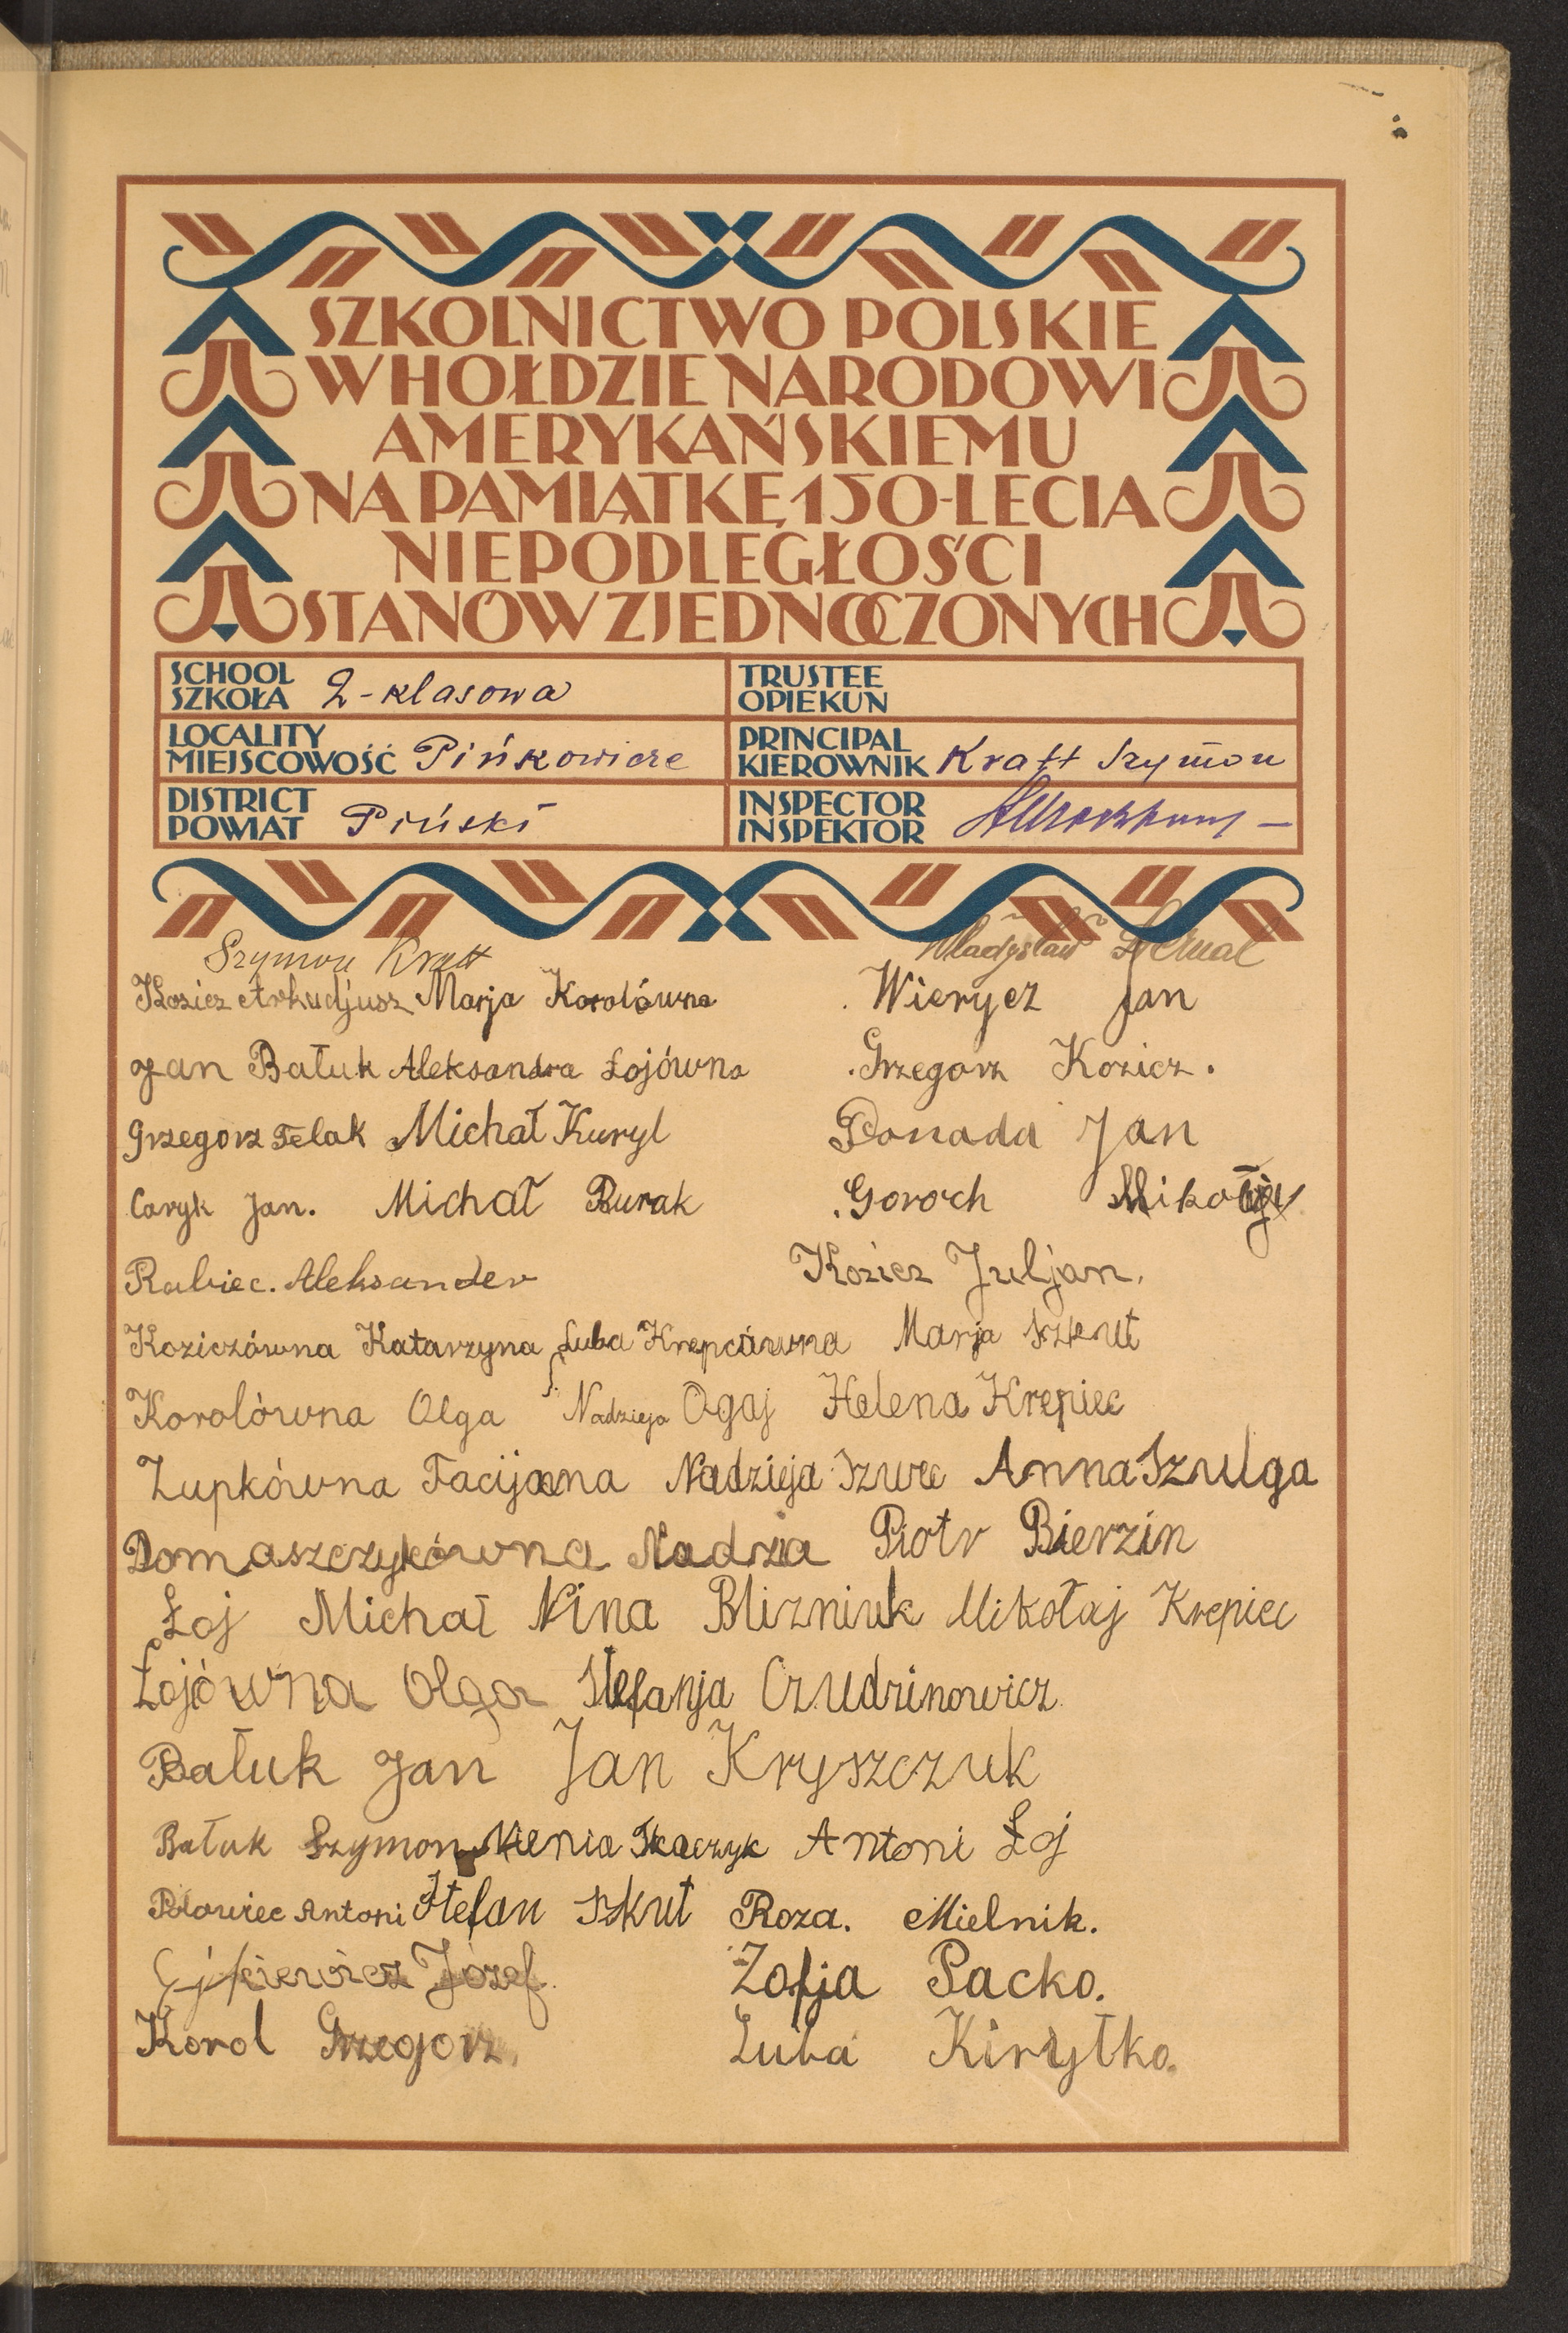 SZKOLNICTWO POLSKIE
W HOŁDZIE NARODOWI
AMERYKAŃSKIEMU
NA PAMIĄTKĘ 150-LECIA
NIEPODLEGŁOŚCI
STANÓW ZJEDNOCZONYCH
SCHOOL
SZKOŁA 2-klasowa
TRUSTEE
OPIEKUN
LOCALITY
MIEJSCOWOŚĆ Pińkowicze
PRINCIPAL
KIEROWNIK Kratt Szymon
DISTRICT
POWIAT Piński
INSPECTOR
INSPEKTOR
Szymon Kratt Władysław
Kozicz Arkadjusz Marja Korolówna Wierycz Jan
Jan Bałuk Aleksandra Łojówna Grzegorz Kozicz.
Grzegorz Telak Michał Kuryl Donada Jan
Caryk Jan. Michał Burak Goroch Mikołaj
Rabiec. Aleksander Kozicz Juljan.
Koziczówna Katarzyna Luba Krepcówna Marja Szkut
Korolówna Olga Nadzieja Ogaj Helena Krepiec
Zupkówna Tacijanna Nadzieja Szwec Anna Szulga
Domaszczykówna Nadzia Piotr Bierzin
Łoj Michał Nina Blizniuk Mikołaj Krepiec
Łojówna Olga Stefanja Czudzinowicz
Bałuk Jan Jan Kryszczuk
Bałuk Szymon Nienia Tkaczyk Antoni Łoj
Połowiec Antoni Stefan Szkut Roza. Mielnik.
Józef Zofja Packo.
Korol Grzegorz. Luba Kiryłko.